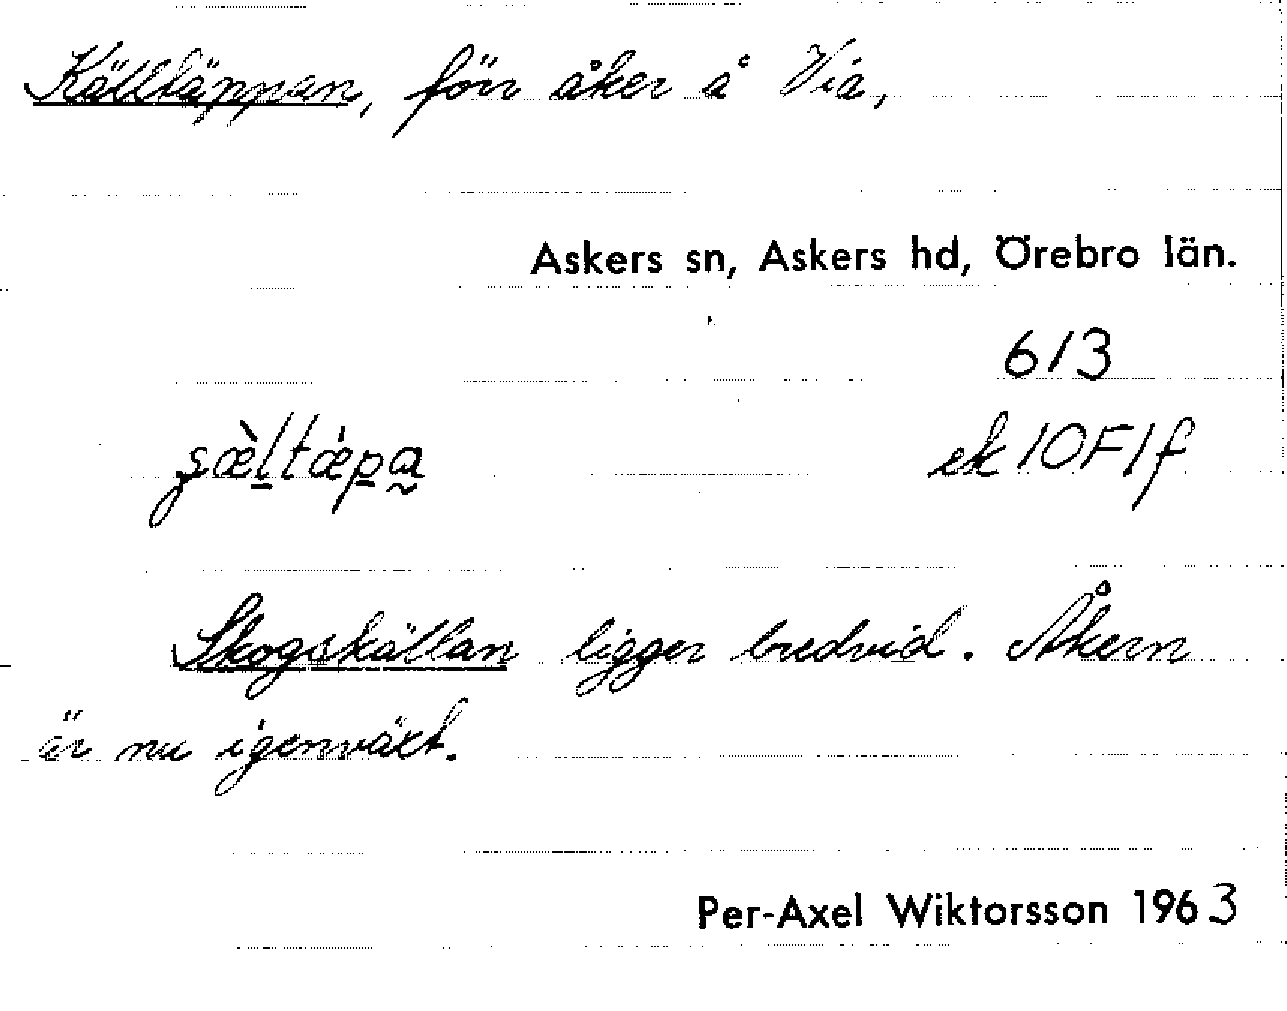 Källtäppan, förr åker å Via,
Askers sn, Askers hd, Örebro län.
613
ʂæ̀l̲tæ̀p̲a̰
ek 10F1f
Skogskällan ligger bredvid. Åkern
är nu igenväxt.
Per-Axel Wiktorsson 1963